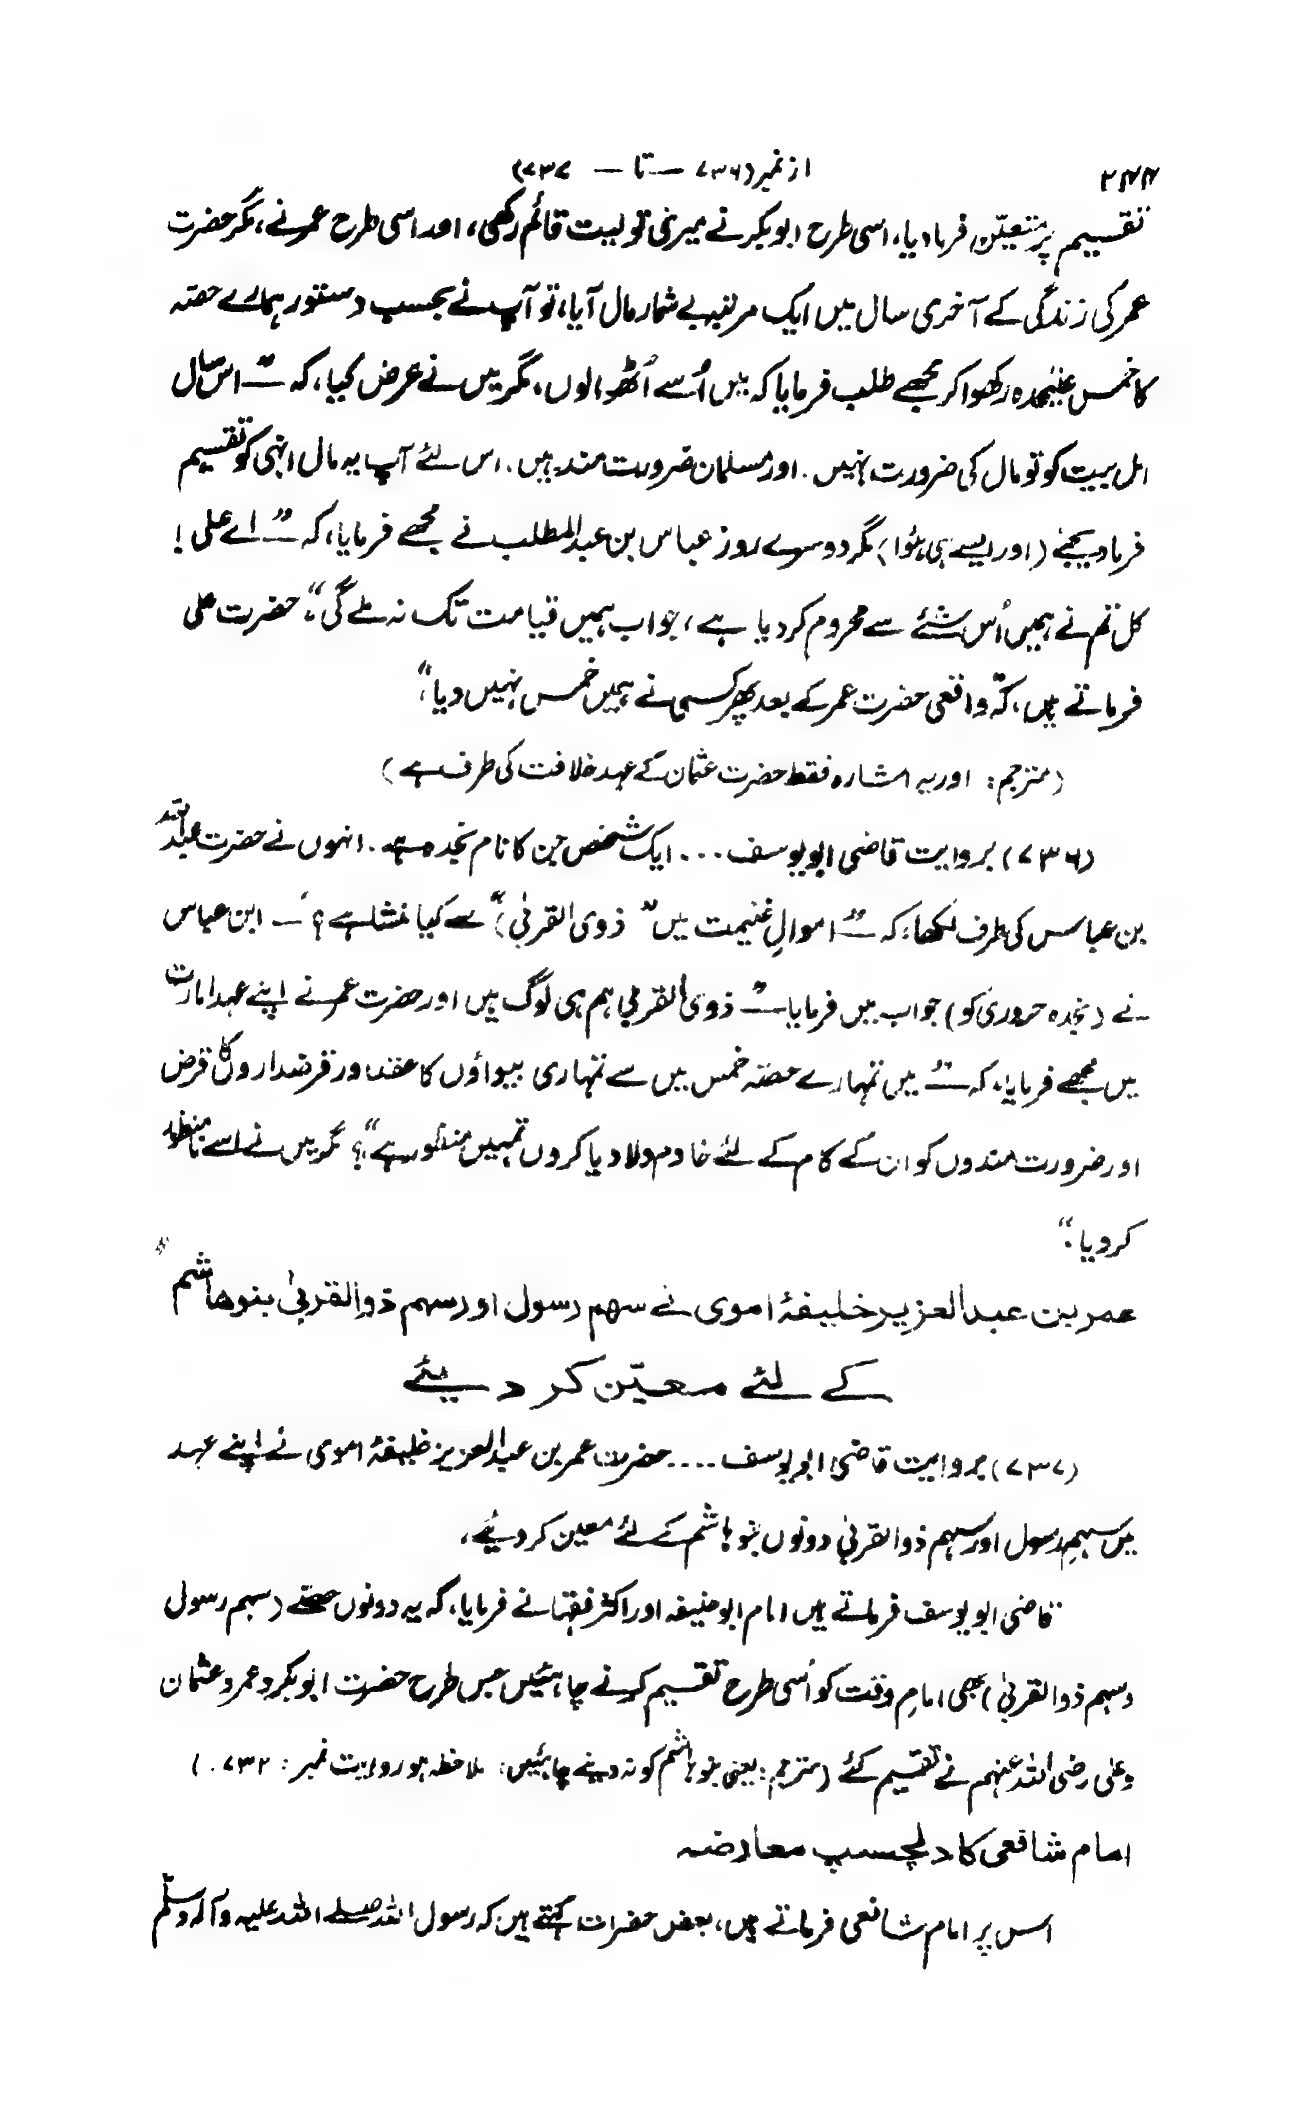 ۲۴۴
از نمبر (۷۳۶ — تا — ۷۳۷)
تقسیم پر متعیّن فرما دیا، اسی طرح ابوبکر نے میری تولیت قائم رکھی، اور اسی طرح عمر نے، مگر حضرت
عمر کی زندگی کے آخری سال میں ایک مرتبہ بے شمار مال آیا، تو آپ نے بحسب دستور ہمارے حصّہ
کا خمس علیٰحدہ رکھوا کر مجھے طلب فرمایا کہ میں اُسے اُٹھوا لوں، مگر میں نے عرض کیا، کہ — ”اس سال
اہل بیت کو تو مال کی ضرورت نہیں. اور مسلمان ضرورت مند ہیں. اس لئے آپ یہ مال انہی کو تقسیم
فرما دیجئے (اور ایسے ہی ہُوا) مگر دوسرے روز عباس بن عبدالمطلب نے مجھے فرمایا، کہ — ”اے علی!
کل تم نے ہمیں اُس شئے سے محروم کر دیا ہے، جو اب ہمیں قیامت تک نہ ملے گی“۔ حضرت علی
فرماتے ہیں، کہ ”واقعی حضرت عمر کے بعد پھر کسی نے ہمیں خمس نہیں دیا“،
(مترجم: اور یہ اشارہ فقط حضرت عثمان کے عہد خلافت کی طرف ہے)
(۷۳۶) بروایت قاضی ابو یوسف ... ایک شخص جن کا نام نجدہ ہے. انہوں نے حضرت عبداللہ
بن عباس کی طرف لکھا، کہ — ”اموالِ غنیمت میں ”ذوی القربیٰ“ سے کیا منشا ہے؟“ — ابن عباس
نے (نجدہ حروری کو) جواب میں فرمایا — ”ذوی القربیٰ ہم ہی لوگ ہیں اور حضرت عمر نے اپنے عہد امارت
میں مجھے فرمایا، کہ — ”میں تمہارے حصّہ خمس میں سے تمہاری بیواؤں کا عقد اور قرضداروں کا قرض
اور ضرورت مندوں کو ان کے کام کے لئے خادم دلا دیا کروں تمہیں منظور ہے“؟ مگر میں نے اسے نامنظور
کر دیا.“
عمر بن عبدالعزیز خلیفۂ اموی نے سہم رسول اور سہم ذوالقربیٰ بنو ہاشم
کے لئے معیّن کر دیئے
(۷۳۷) بروایت قاضی ابو یوسف .... حضرت عمر بن عبدالعزیز خلیفۂ اموی نے اپنے عہد
میں سہمِ رسول اور سہم ذوالقربیٰ دونوں بنو ہاشم کے لئے معین کر دیئے،
قاضی ابو یوسف فرماتے ہیں امام ابو حنیفہ اور اکثر فقہا نے فرمایا، کہ یہ دونوں حصّے (سہم رسول
و سہم ذوالقربیٰ) بھی امامِ وقت کو اُسی طرح تقسیم کرنے چاہئیں جس طرح حضرت ابوبکر و عمر و عثمان
و علی رضی اللہ عنہم نے تقسیم کئے (مترجم: یعنی بنو ہاشم کو نہ دینے چاہئیں: ملاحظہ ہو روایت نمبر: ۷۳۲.)
امام شافعی کا دلچسپ معارضہ
اس پر امام شافعی فرماتے ہیں، بعض حضرات کہتے ہیں کہ رسول اللہ صلے اللہ علیہ وآلہ وسلّم